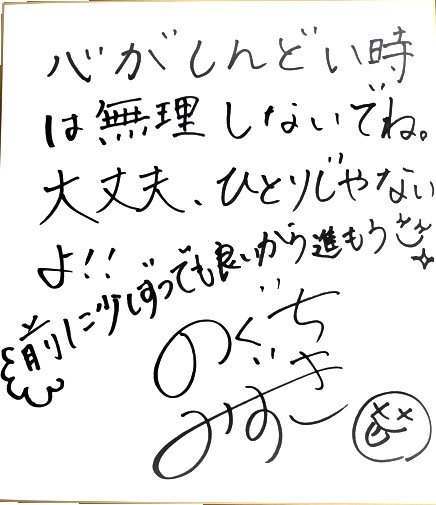 心がしんどい時
は無理しないでね。
大丈夫、ひとりじゃない
よ!!
前に少しずつでも良いから進もう
のぐち
みずき